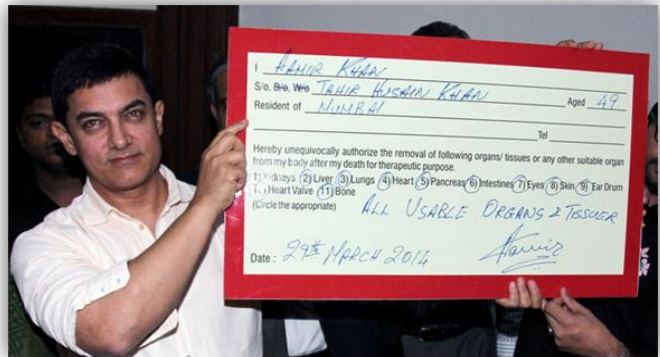 I AAMIR KHAN
S/o, D/o, W/o TAHIR HUSAIN KHAN Aged 49
Resident of MUMBAI
Tel
Hereby unequivocally authorize the removal of following organs/ tissues or any other suitable organ
from my body after my death for therapeutic purpose.
1) Kidneys 2) Liver 3) Lungs 4) Heart 5) Pancreas 6) Intestines 7) Eyes 8) Skin 9) Ear Drum
10) Heart Valve 11) Bone
(Circle the appropriate) ALL USABLE ORGANS & TISSUES
Date : 29th MARCH 2014 Aamir